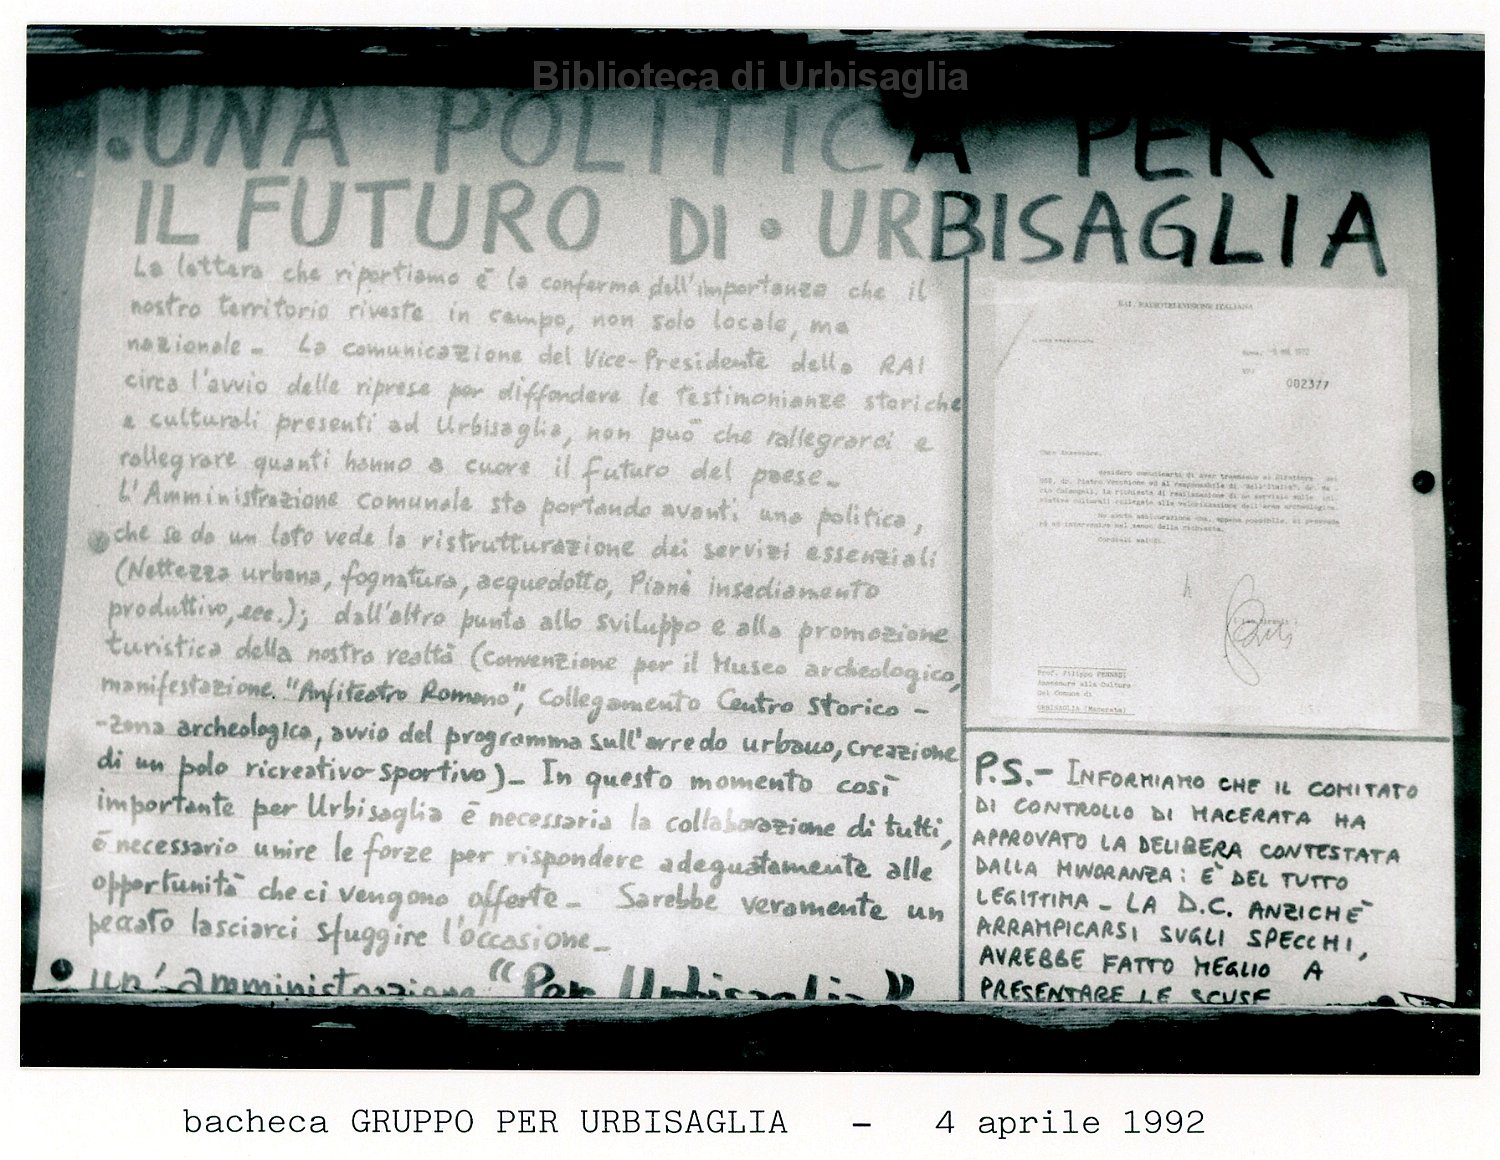 Biblioteca di Urbisaglia
UNA POLITICA PER
IL FUTURO DI URBISAGLIA
La lettera che riportiamo è la conferma dell'importanza che il
nostro territorio riveste in campo, non solo locale, ma
nazionale - La comunicazione del Vice-Presidente della RAI
circa l'avvio delle riprese per diffondere le testimonianze storiche
e culturali presenti ad Urbisaglia, non può che rallegrarci e
rallegrare quanti hanno a cuore il futuro del paese-
L'Amministrazione comunale sta portando avanti una politica,
che se da un lato vede la ristrutturazione dei servizi essenziali
(Nettezza urbana, fognatura, acquedotto, Piano insediamento
produttivo, ecc.); dall'altro punta allo sviluppo e alla promozione
turistica della nostra realtà (Convenzione per il Museo archeologico,
manifestazione "Anfiteatro Romano", Collegamento Centro Storico -
-zona archeologica, avvio del programma sull'arredo urbano, creazione
di un polo ricreativo-sportivo)- In questo momento così
importante per Urbisaglia è necessaria la collaborazione di tutti,
è necessario unire le forze per rispondere adeguatamente alle
opportunità che ci vengono offerte- Sarebbe veramente un
peccato lasciarci sfuggire l'occasione-
un'amministrazione "Per Urbisaglia"
RAI. RADIOTELEVISIONE ITALIANA
002377
Caro Assessore,
desidero comunicarti di aver trasmesso al Direttore del
dr. Pietro Vecchione ed al responsabile di "Bell'Italia", dr.
la richiesta di realizzazione di un servizio sulle
culturali collegate alla valorizzazione dell'area archeologica.
Ho avuto assicurazione che, appena possibile, si
ad intervenire nel senso della richiesta.
Cordiali saluti.
Prof. Filippo PENNESI
Assessore alla Cultura
del Comune di
URBISAGLIA (Macerata)
P.S.- INFORMIAMO CHE IL COMITATO
DI CONTROLLO DI MACERATA HA
APPROVATO LA DELIBERA CONTESTATA
DALLA MINORANZA: È DEL TUTTO
LEGITTIMA - LA D.C. ANZICHÈ
ARRAMPICARSI SUGLI SPECCHI,
AVREBBE FATTO MEGLIO A
PRESENTARE LE SCUSE
bacheca GRUPPO PER URBISAGLIA - 4 aprile 1992